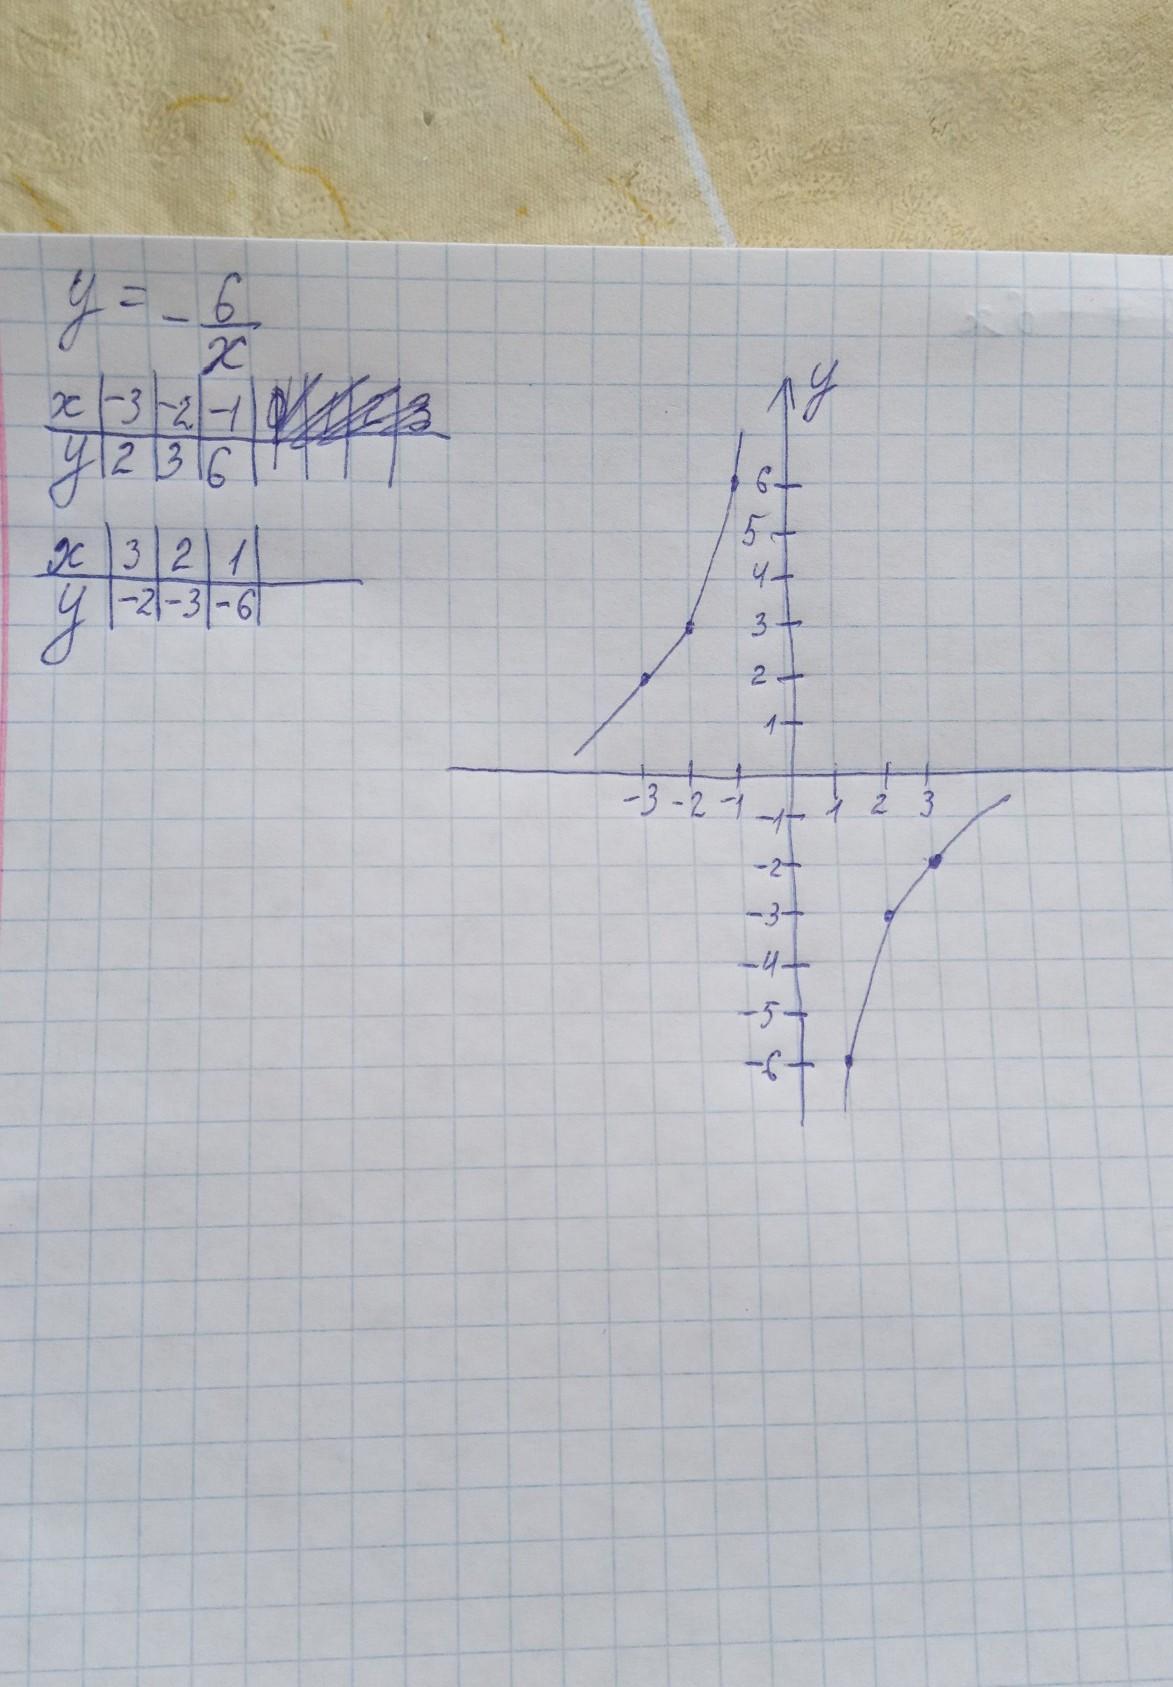 y = - 6/x
x -3 -2 -1
y 2 3 6
x 3 2 1
y -2 -3 -6
y
6
5
4
3
2
1
-3 -2 -1 1 2 3
-1
-2
-3
-4
-5
-6